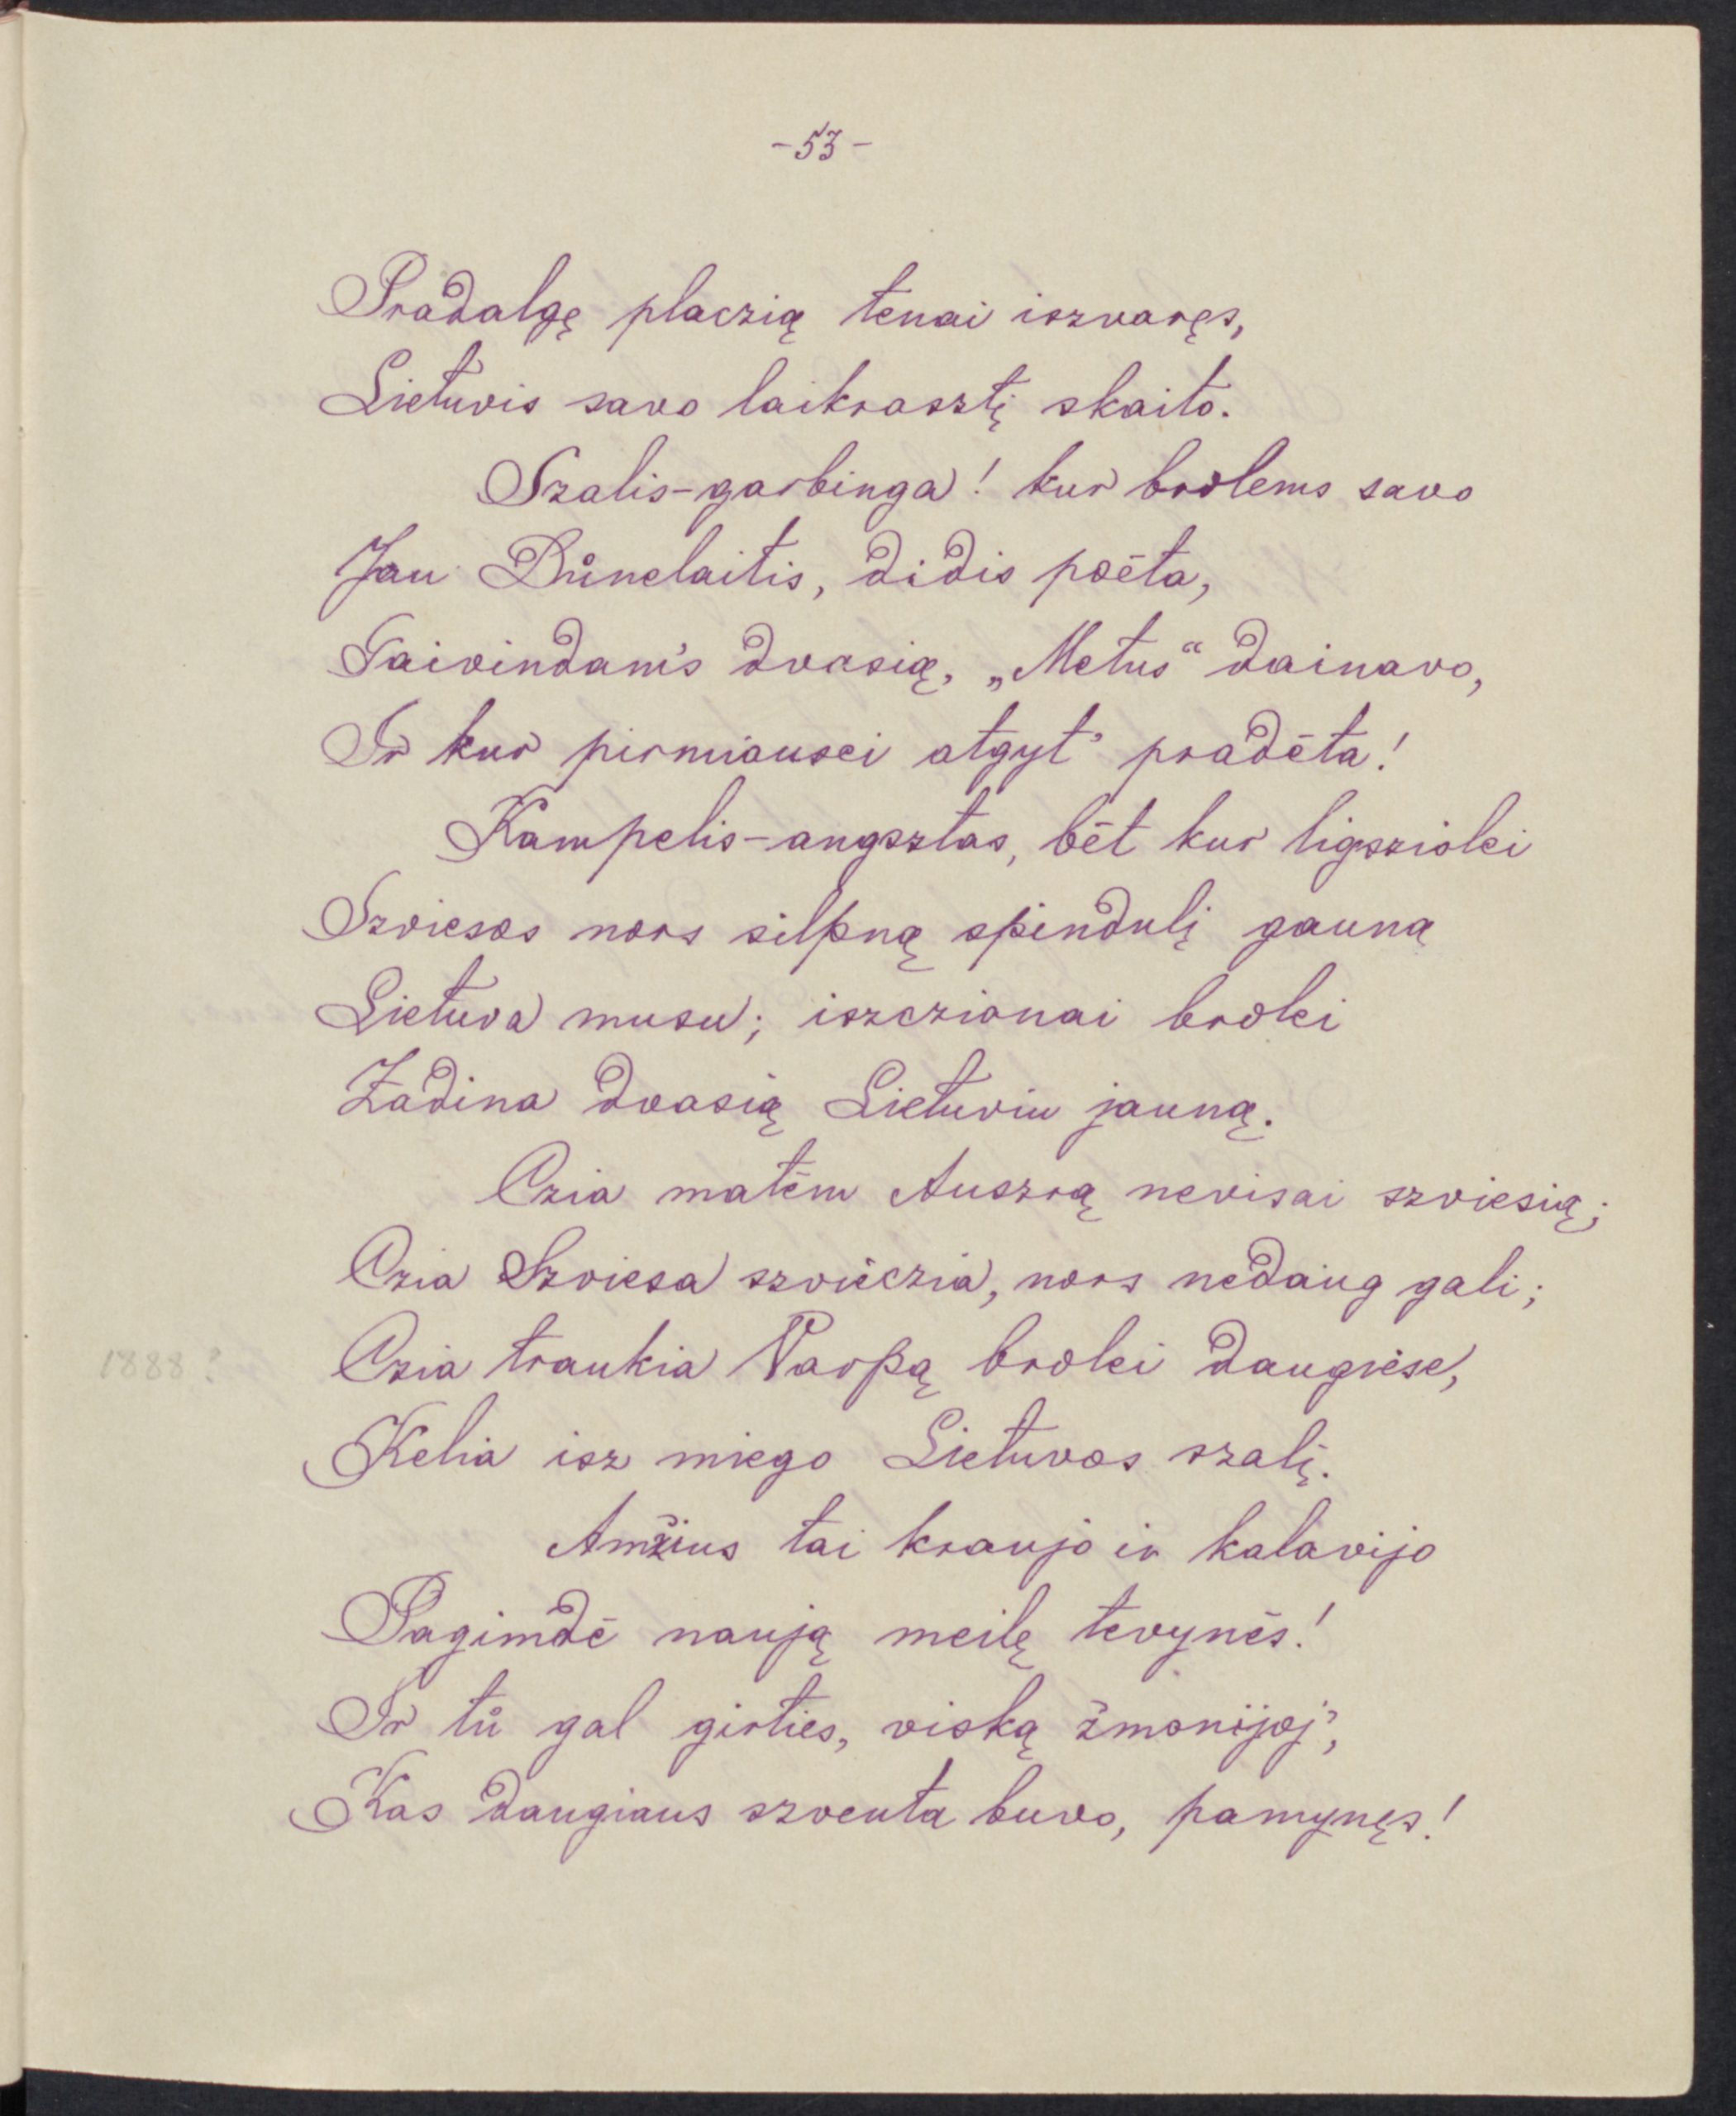 -53-
Pradalgę placzią tenai iszvaręs,
Lietuvis savo laikrasztį skaito.
Szalis-garbinga! kur brolems savo
Jau Důnelaitis, didis poėta,
Gaivindam's dvasią, „Metus“ dainavo,
Ir kur pirmiausei atgyt' pradėta!
Kampelis-angsztas, bėt kur ligsziolei
Szviesos nors silpną spindulį gauna
Lietuva musu; iszczionai brolei
Žadina dvasią Lietuviu jauną.
Czia matėm Auszrą nevisai szviesią;
Czia Szviesa szvieczia, nors nedaug gali;
1888? Czia traukia Varpą brolei daugiese,
Kelia isz miego Lietuvos szalį.
Amžius tai kraujo ir kalavijo
Pagimdė naują meilę tevynės!
Ir tů gal girties, viską žmonijoj',
Kas daugiaus szventa buvo, pamynęs!